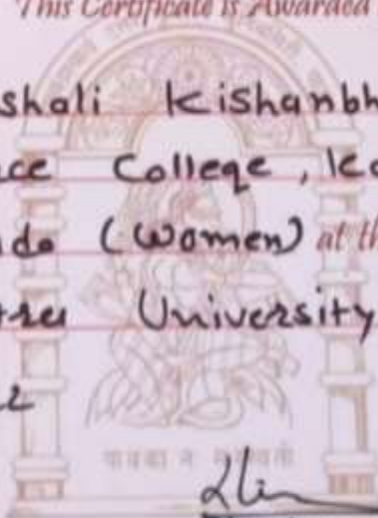 This Certificate is Awarded
shali Kishanbh
ce College, Ko
do (Women) at th
University
2